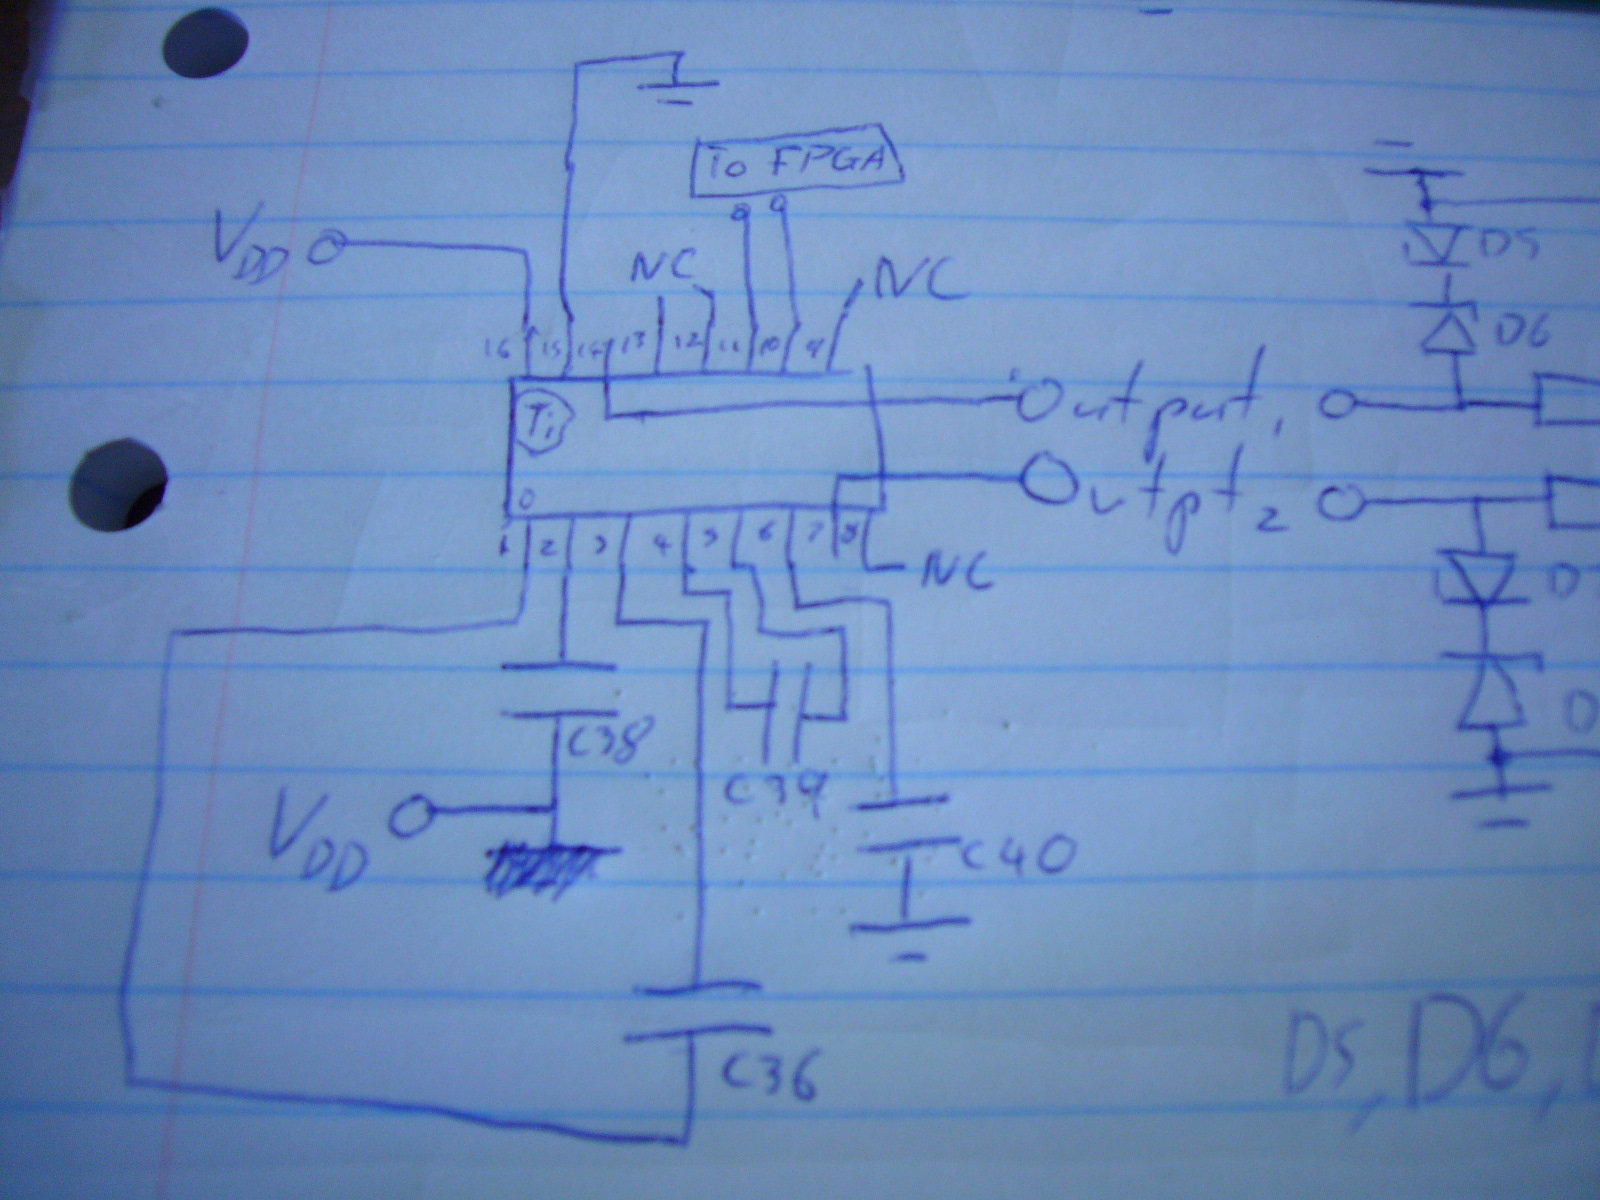 To FPGA
V DD
NC
NC
D5
16 15 14 13 12 11 10 9
D6
Ti
Output 1
Outpt 2
1 2 3 4 5 6 7 8
NC
C38
C39
V DD
C40
C36
D5, D6,